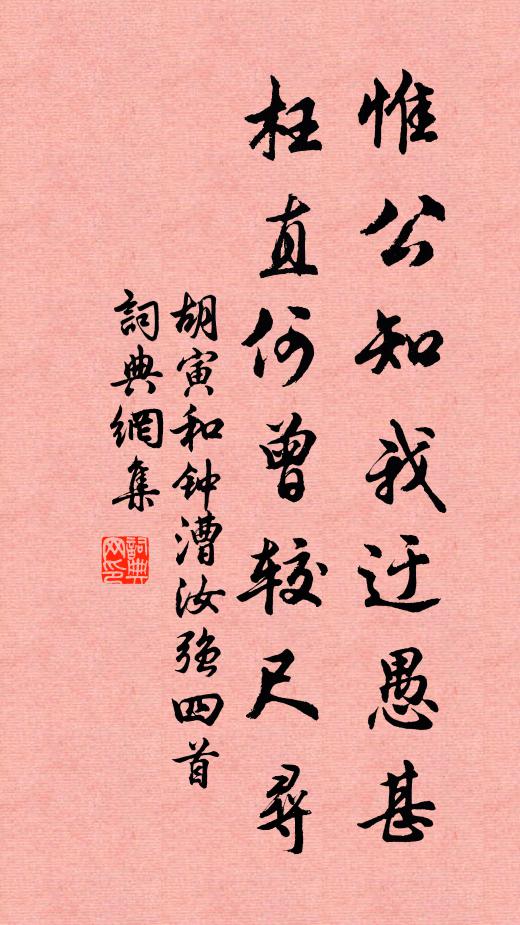 惟公知我迂愚甚
枉直何曾較尺尋
胡寅和钟漕汝强四首
詞典網集
詞典网印